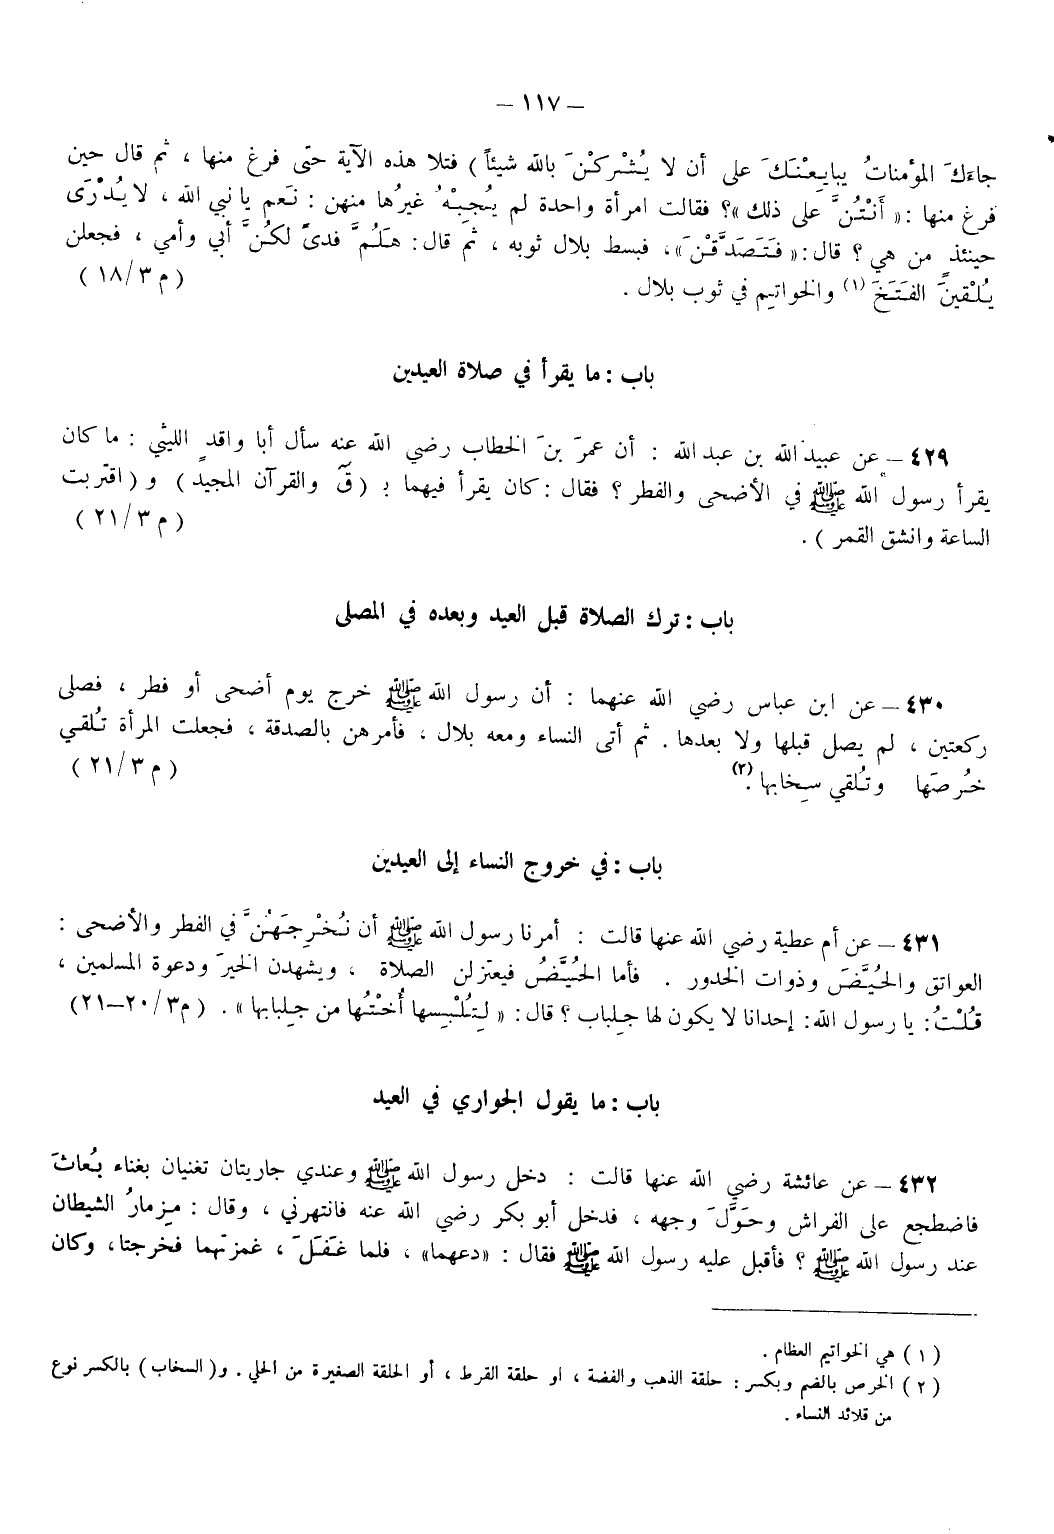 – ١١٧ –
جاءكَ المؤمناتُ يبايِعْنَكَ على أن لا يُشْرِكْنَ بالله شيئاً ) فتلا هذه الآية حتى فرغ منها ، ثم قال حين
فرغ منها : « أَنْتُنَّ على ذلك »؟ فقالت امرأة واحدة لم يُجِبْهُ غيرُها منهن : نَعم يا نبي الله ، لا يُدْرَى
حينئذٍ من هي ؟ قال : « فَتَصَدَّقْنَ »، فبسط بلال ثوبه ، ثم قال : هَلُمَّ فدىً لكُنَّ أبي وأمي ، فجعلن
يُلْقينَ الفَتَخَ (١) والخواتيم في ثوب بلال . ( م ٣/ ١٨ )
باب : ما يقرأ في صلاة العيدين
٤٢٩ – عن عبيد الله بن عبد الله : أن عمرَ بنَ الخطاب رضي الله عنه سأل أبا واقدٍ الليثي : ما كان
يقرأ رسول الله ﷺ في الأضحى والفطر ؟ فقال : كان يقرأ فيهما بـ ( قَ والقرآن المجيدِ ) و ( اقتربت
الساعة وانشق القمر ) . ( م ٣/ ٢١ )
باب : ترك الصلاة قبل العيد وبعده في المصلى
٤٣٠ – عن ابن عباس رضي الله عنهما : أن رسول الله ﷺ خرج يوم أضحى أو فطر ، فصلى
ركعتين ، لم يصل قبلها ولا بعدها . ثم أتى النساء ومعه بلال ، فأمرهن بالصدقة ، فجعلت المرأة تُلقي
خُرصَها وتُلقي سِخابها (٢). ( م ٣/ ٢١ )
باب : في خروج النساء إلى العيدين
٤٣١ – عن أم عطية رضي الله عنها قالت : أمرنا رسول الله ﷺ أن نُخْرِجَهُنَّ في الفطر والأضحى :
العواتق والحُيَّضَ وذوات الخدور . فأما الحُيَّضُ فيعتزلن الصلاة ، ويشهدن الخيرَ ودعوة المسلمين ،
قُلْتُ : يا رسول الله : إحدانا لا يكون لها جلباب ؟ قال : « لِتُلْبِسها أُخْتُها من جِلبابها » . ( م٣/ ٢٠–٢١)
باب : ما يقول الجواري في العيد
٤٣٢ – عن عائشة رضي الله عنها قالت : دخل رسول الله ﷺ وعندي جاريتان تغنيان بغناء بُعاثَ
فاضطجع على الفراش وحَوَّلَ وجهه ، فدخل أبو بكر رضي الله عنه فانتهرني ، وقال : مِزمارُ الشيطان
عند رسول الله ﷺ ؟ فأقبل عليه رسول الله ﷺ فقال : «دعهما» ، فلما غَفَلَ ، غمزتهما فخرجتا، وكان
( ١ ) هي الخواتيم العظام .
( ٢ ) الخرص بالضم وبكسر : حلقة الذهب والفضة ، او حلقة القرط ، أو الحلقة الصغيرة من الحلي . و( السخاب ) بالكسر نوع
من قلائد النساء .